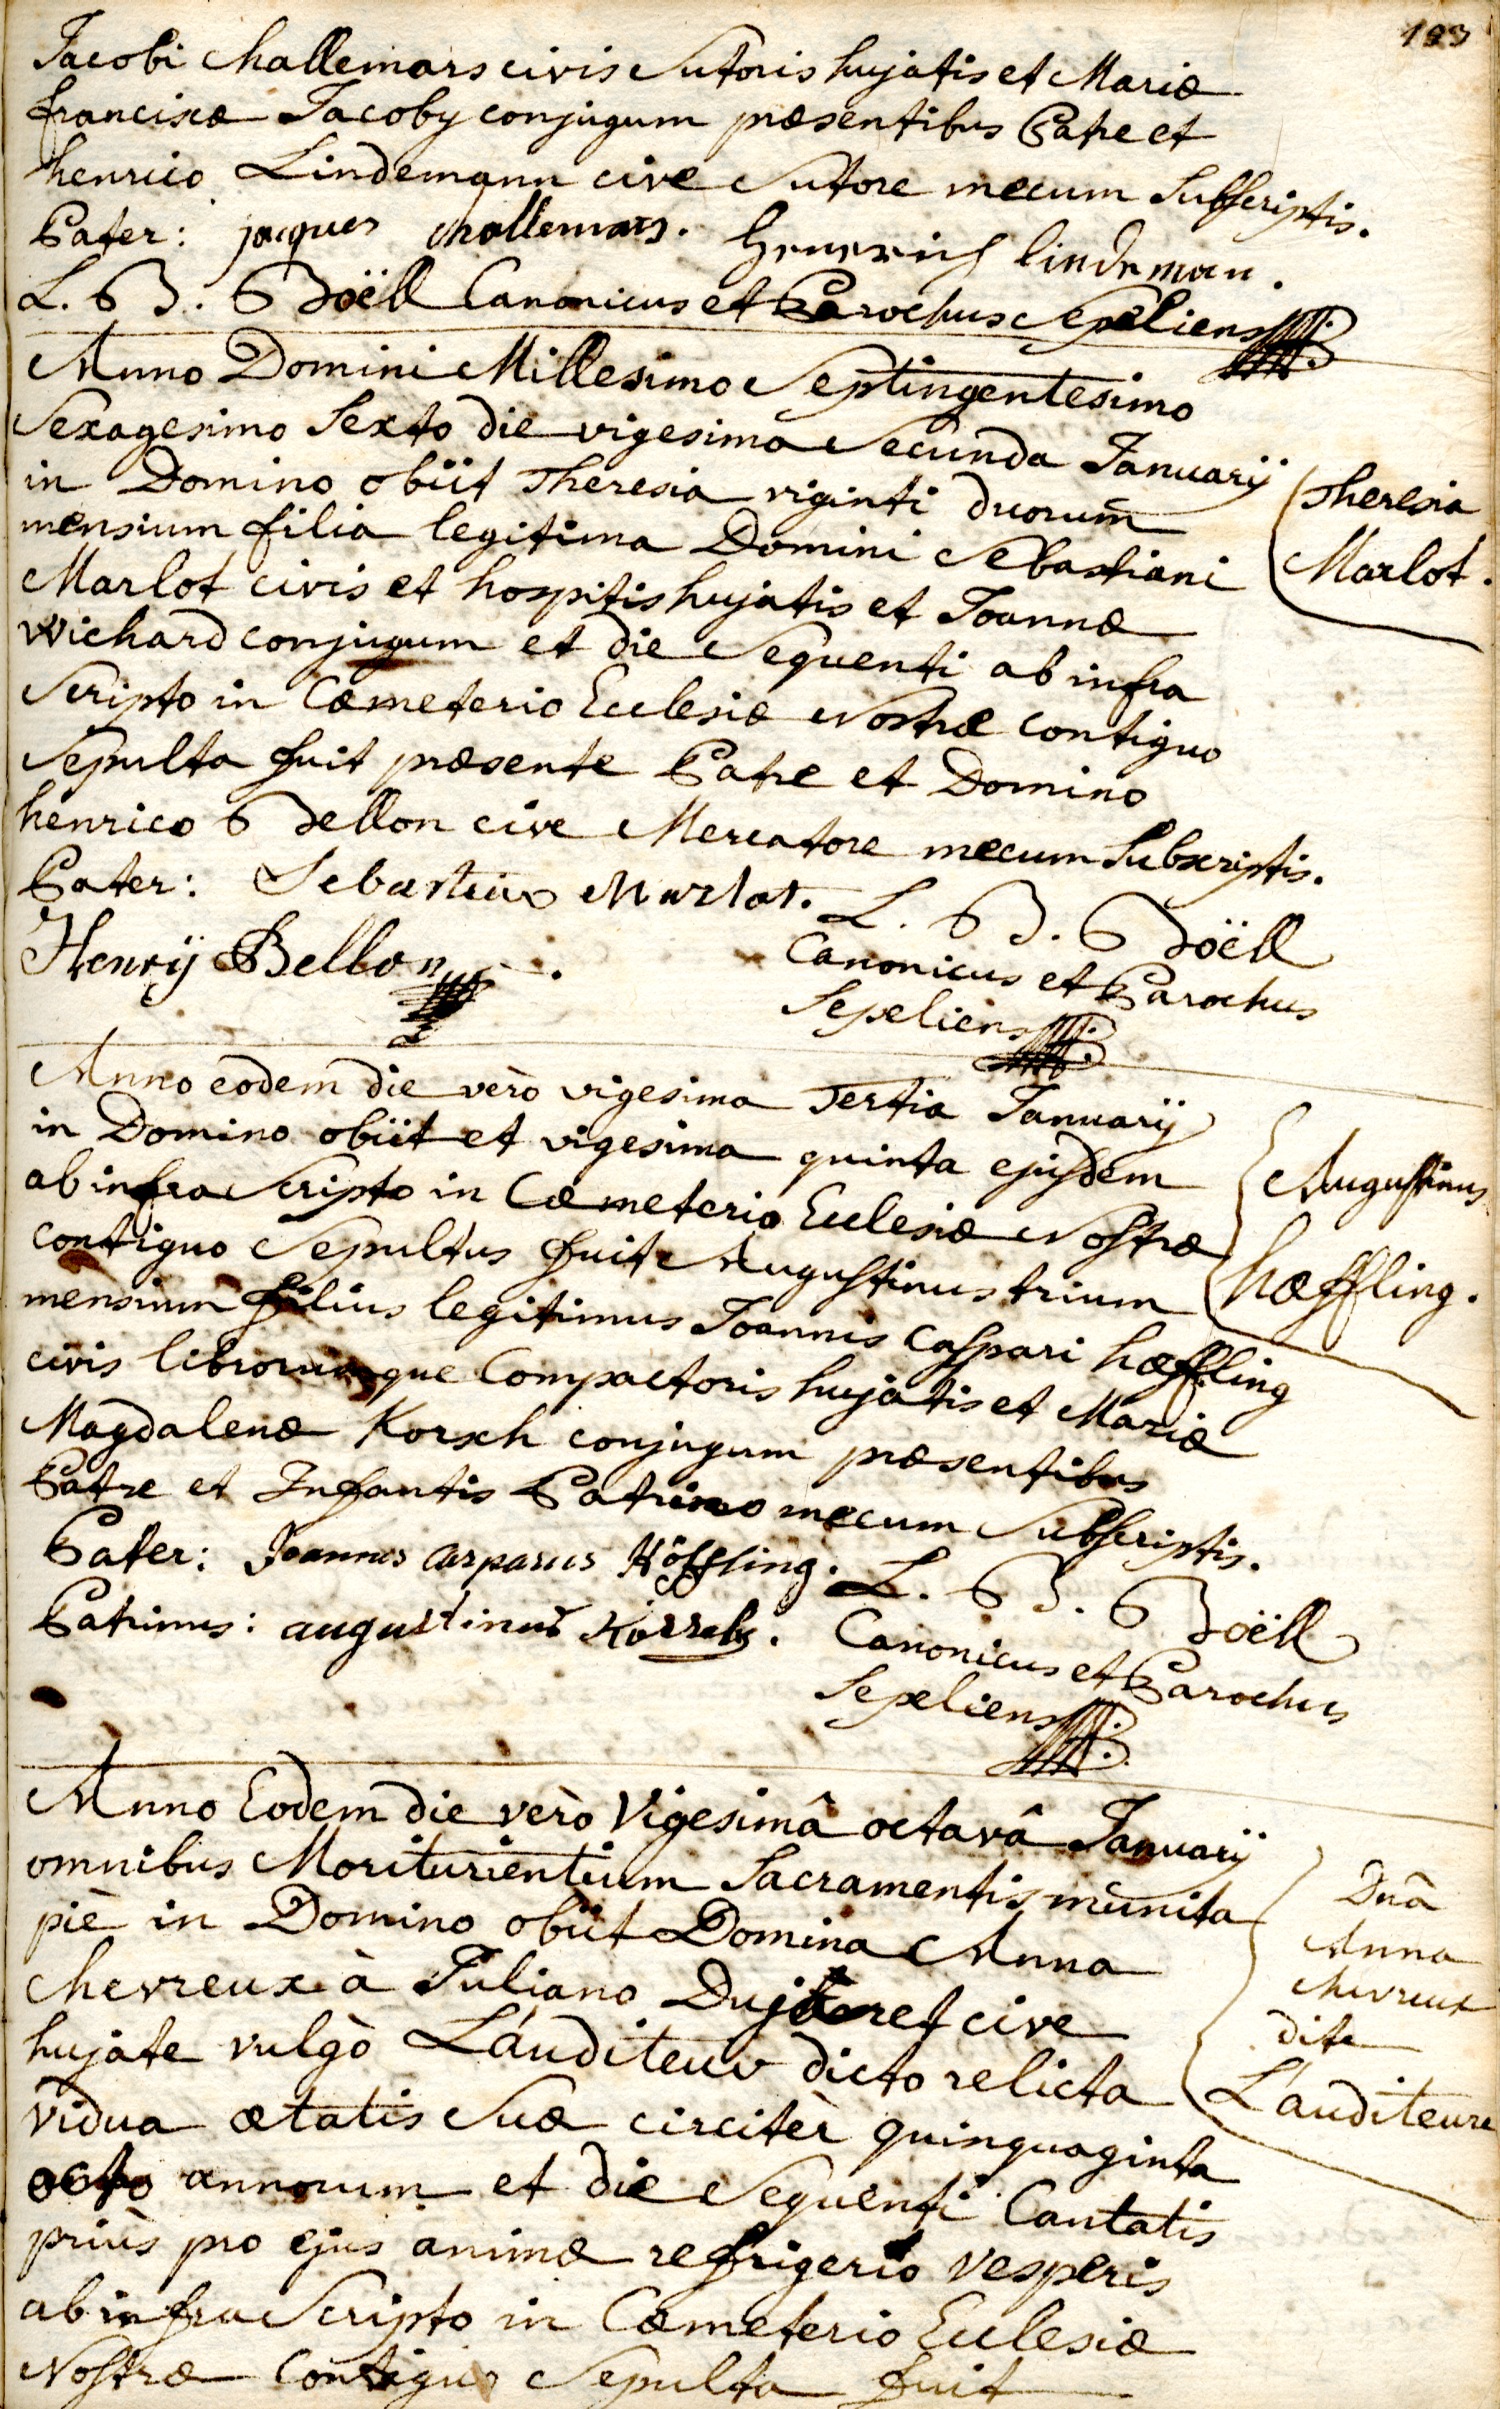 193
Jacobi challemars civis Sutoris hujatis et Mariæ
franciscæ Jacoby conjugum præsentibus Patre et
henrico Lindemann cive Sutore mecum Subscriptis.
Pater: jacques challemars. Henerich lindeman.
L. B. Boëll Canonicus et Parochus Sepeliens
Anno Domini Millesimo Septingentesimo
Sexagesimo Sexto die vigesima Secunda Januarij
in Domino obiit Theresia viginti duorum
mensium filia legitima Domini Sebastiani
Marlot civis et hospitis hujatis et Joannæ
wichard conjugum et die Sequenti ab infra
Scripto in Cæmeterio Ecclesiæ Nostræ contiguo
Sepulta fuit præsente Patre et Domino
henrico Bellon cive Mercatore mecum Subscriptis.
Pater: Sebastian Marlot.
Henrÿ Bellon.
L. B. Boëll
Canonicus et Parochus
Sepeliens
Theresia
Marlot.
Anno eodem die verò vigesima Tertia Januarij
in Domino obiit et vigesima quinta ejusdem
ab infra Scripto in Cæmeterio Ecclesiæ Nostræ
contiguo Sepultus fuit Augustinus trium
mensium filius legitimus Joannis Caspari hæffling
civis librorumque Compactoris hujatis et Mariæ
Magdalenæ Korsch conjugum præsentibus
Patre et Infantis Patrino mecum Subscriptis.
Pater: Joannes Casparus Höffling.
Patrinus: augustinus
L. B. Boëll
Canonicus et Parochus
Sepeliens
Augustinus
hæffling.
Anno Eodem die verò Vigesimâ octavâ Januarij
omnibus Moriturientium Sacramentis munita
piè in Domino obiit Domina Anna
chevreux à Juliano cive
hujate vulgò L'auditeur dicto relicta
vidua ætatis Suæ circiter quinquaginta
octo annorum et die Sequenti Cantatis
priùs pro ejus animæ refrigerio Vesperis
ab infra Scripto in Cæmeterio Ecclesiæ
Nostræ Contiguo Sepulta fuit
Dnâ
Anna
chevreux
dite
L'auditeure